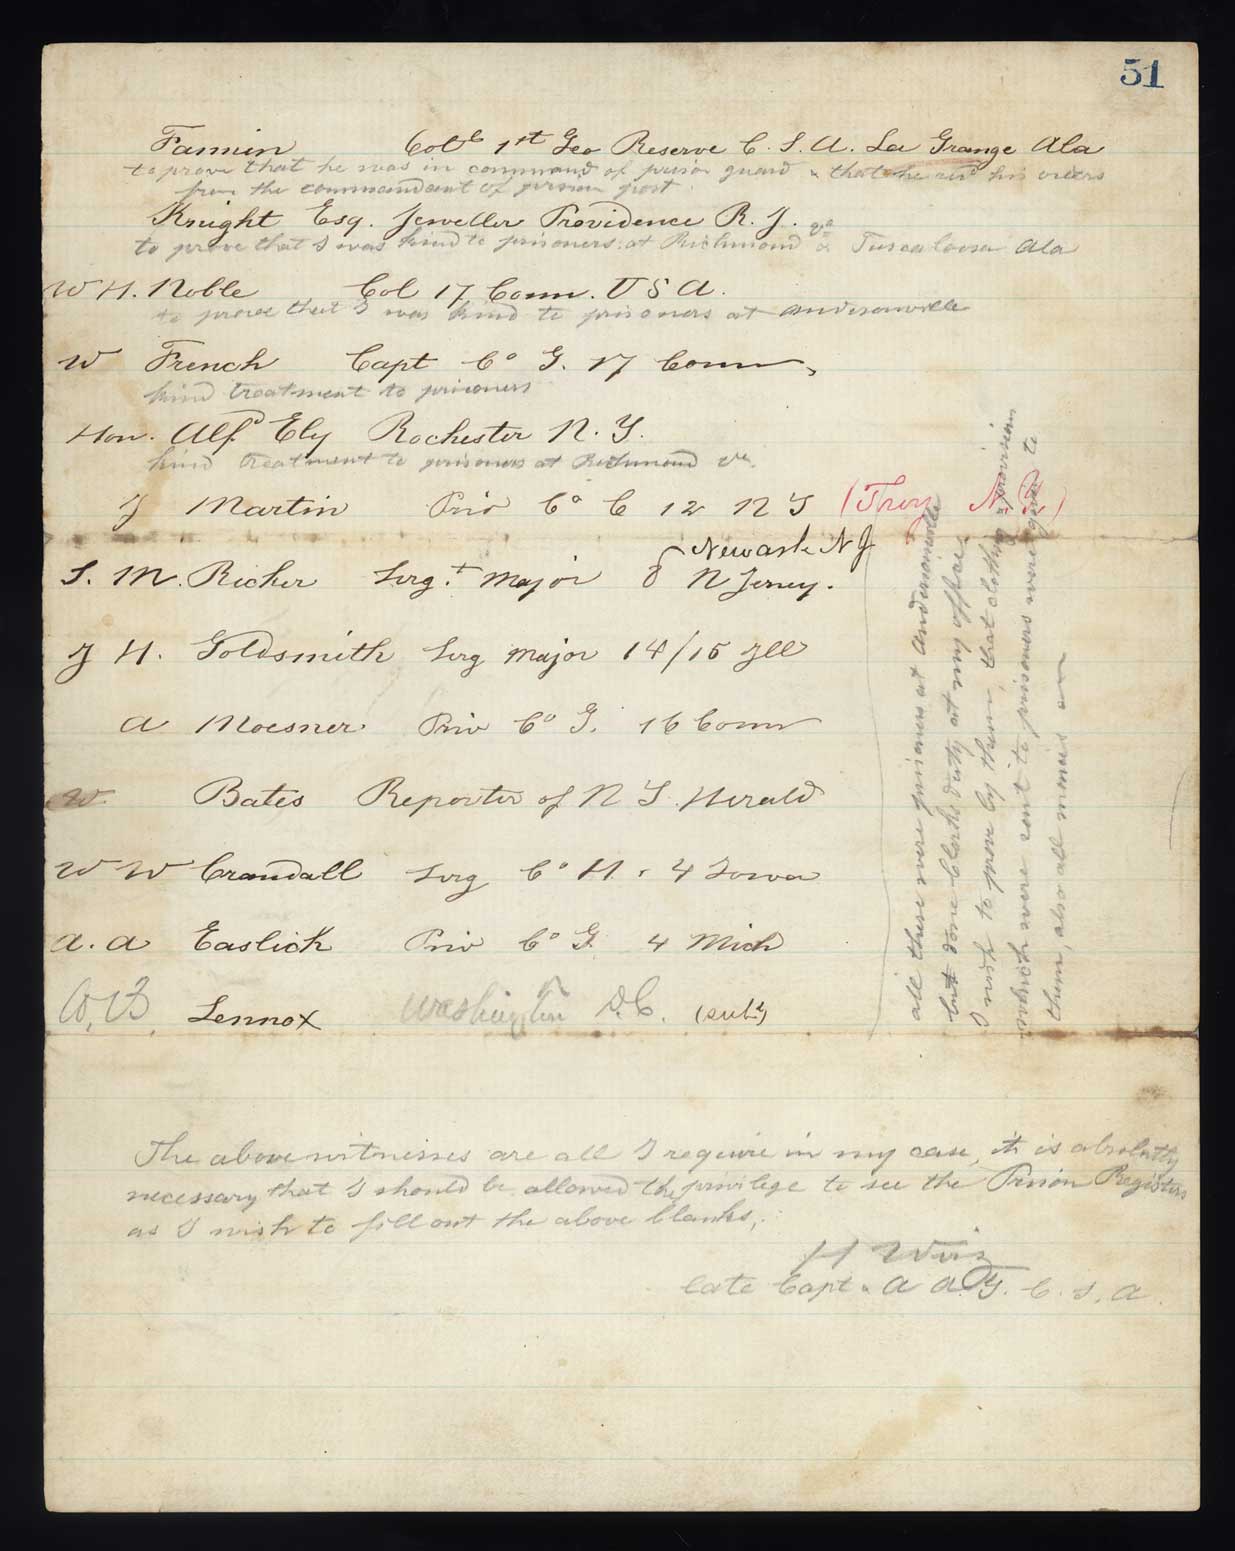 51
Fannin Col 1st Geo Reserve C. S. A. La Grange Ala
to prove that he was in command of prison guard & that he rcvd his orders
from the commandant of prison post.
Knight Esq. Jeweller Providence R. I.
to prove that I was kind to prisoners at Richmond Va & Tuscaloosa Ala
W H. Noble Col 17 Conn. U S A.
to prove that I was kind to prisoners at Andersonville
W French Capt Co G. 17 Conn.
kind treatment to prisoners
Hon. Alfd Ely Rochester N. Y.
kind treatment to prisoners at Richmond Va.
J Martin Priv Co C 12 N Y (Troy N. Y.)
Newark N J
S. M. Richer Sergt Major 8 N Jersey.
J H. Goldsmith Serg Major 14/15 Ill
A Moesner Priv Co G. 16 Conn
W. Bates Reporter of N Y Herald
W W Crandall Serg Co H. 4 Iowa
A. A Easlick Priv Co G. 4 Mich
Lennox Washington D.C.
all these were prisoners at Andersonville
but done clerks duty at my office,
I wish to prove by them, that clothing & provision
which were sent to prisoners were given to
them, also all monies
The above witnesses are all I require in my case, it is absolutly
necessary that I should be allowed the privilege to see the Prison Registers
as I wish to fill out the above blanks,
H Wirz
late Capt & A A. G. C. S. A.